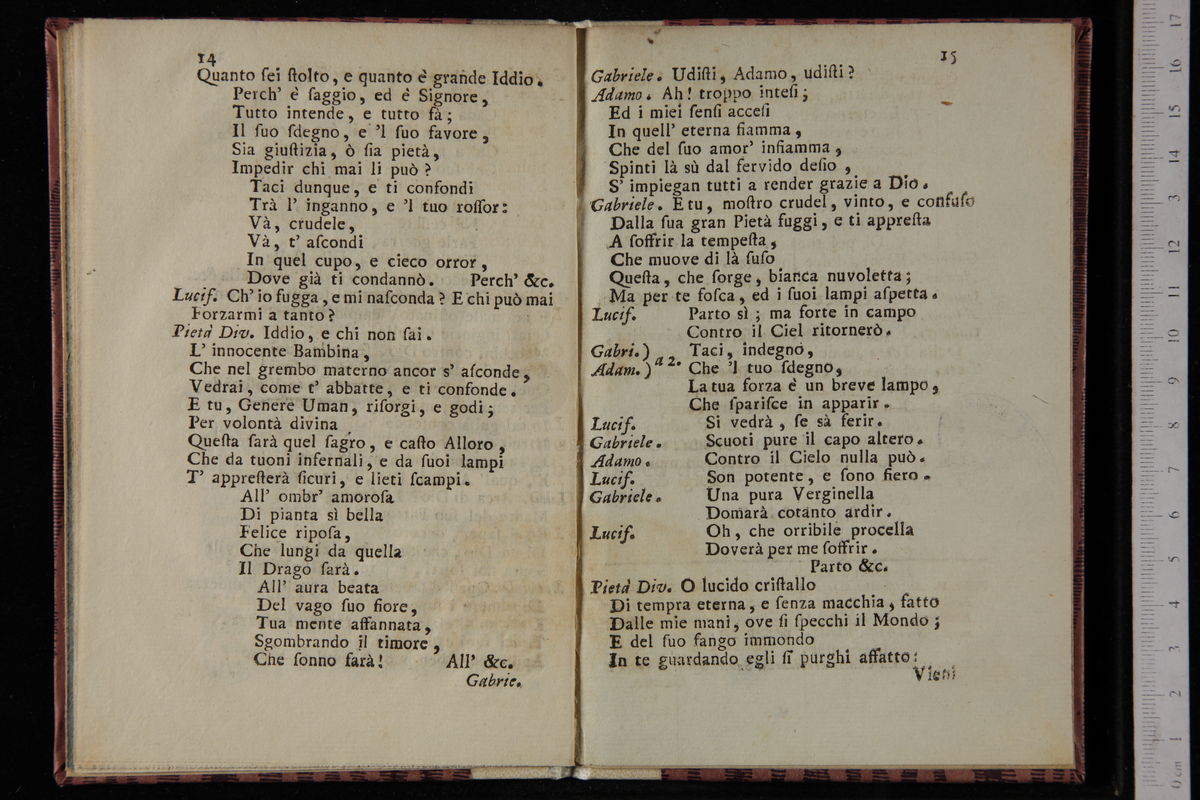 14
Quanto ſei ſtolto, e quanto è grande Iddio.
Perch' è ſaggio, ed è Signore,
Tutto intende, e tutto fà;
Il ſuo ſdegno, e 'l ſuo favore,
Sia giuſtizia, ò ſia pietà,
Impedir chi mai li può?
Taci dunque, e ti confondi
Trà l' inganno, e 'l tuo roſſor:
Và, crudele,
Và, t' aſcondi
In quel cupo, e cieco orror,
Dove già ti condannò. Perch' &c.
Lucif. Ch' io fugga, e mi naſconda? E chi può mai
Forzarmi a tanto?
Pietà Div. Iddio, e chi non ſai.
L' innocente Bambina,
Che nel grembo materno ancor s' aſconde,
Vedrai, come t' abbatte, e ti confonde.
E tu, Genere Uman, riſorgi, e godi;
Per volontà divina
Queſta ſarà quel ſagro, e caſto Alloro,
Che da tuoni infernali, e da ſuoi lampi
T' appreſterà ſicuri, e lieti ſcampi.
All' ombr' amoroſa
Di pianta sì bella
Felice ripoſa,
Che lungi da quella
Il Drago ſarà.
All' aura beata
Del vago ſuo fiore,
Tua mente affannata,
Sgombrando il timore,
Che ſonno farà! All' &c.
Gabrie.
15
Gabriele. Udiſti, Adamo, udiſti?
Adamo. Ah! troppo inteſi;
Ed i miei ſenſi acceſi
In quell' eterna fiamma,
Che del ſuo amor' infiamma,
Spinti là sù dal fervido deſio,
S' impiegan tutti a render grazie a Dio.
Gabriele. E tu, moſtro crudel, vinto, e confuſo
Dalla ſua gran Pietà fuggi, e ti appreſta
A ſoffrir la tempeſta,
Che muove di là ſuſo
Queſta, che ſorge, bianca nuvoletta;
Ma per te foſca, ed i ſuoi lampi aſpetta.
Lucif. Parto sì; ma forte in campo
Contro il Ciel ritornerò.
Gabri.) a 2. Taci, indegno,
Adam.) Che 'l tuo ſdegno,
La tua forza è un breve lampo,
Che ſpariſce in apparir.
Lucif. Si vedrà, ſe sà ferir.
Gabriele. Scuoti pure il capo altero.
Adamo. Contro il Cielo nulla può.
Lucif. Son potente, e ſono fiero.
Gabriele. Una pura Verginella
Domarà cotanto ardir.
Lucif. Oh, che orribile procella
Doverà per me ſoffrir.
Parto &c.
Pietà Div. O lucido criſtallo
Di tempra eterna, e ſenza macchia, fatto
Dalle mie mani, ove ſi ſpecchi il Mondo;
E del ſuo fango immondo
In te guardando egli ſi purghi affatto:
Vieni
0 cm 1 2 3 4 5 6 7 8 9 10 11 12 13 14 15 16 17